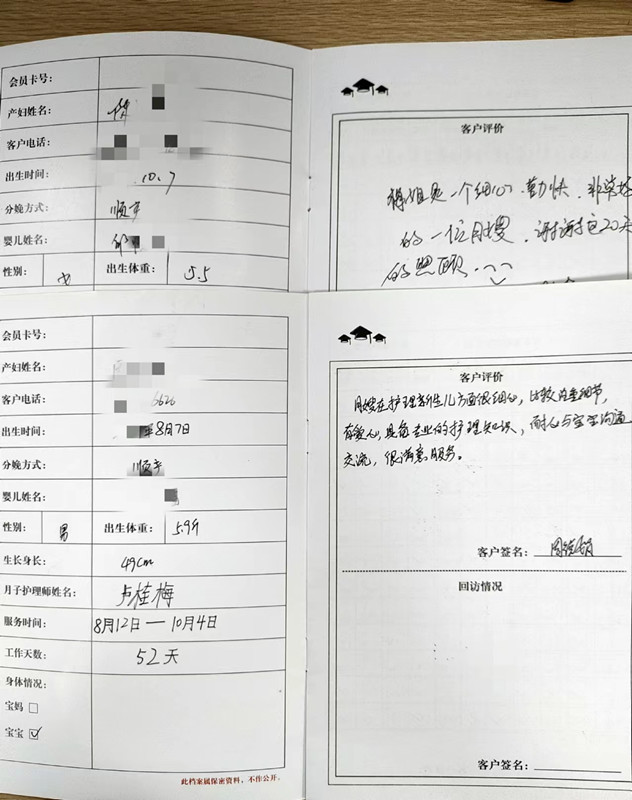 会员卡号：
产妇姓名：
客户电话：
出生时间： 10.7
分娩方式： 顺产
婴儿姓名：
性别： 女 出生体重： 5.5
客户评价
是一个细心、勤快、非常好
的一位月嫂、谢谢这20天
的照顾
会员卡号：
产妇姓名：
客户电话： 6626
出生时间： 年8月7日
分娩方式： 顺产
婴儿姓名：
性别： 男 出生体重： 5.9斤
生长身长： 49cm
月子护理师姓名： 卢桂梅
服务时间： 8月12日—10月4日
工作天数： 52天
身体情况：
宝妈
宝宝
此档案属保密资料，不作公开。
客户评价
月嫂在护理新生儿方面很细心，比较注重细节，
有爱心，具备专业的护理知识，耐心与宝宝沟通
交流，很满意服务。
客户签名：
回访情况
客户签名：